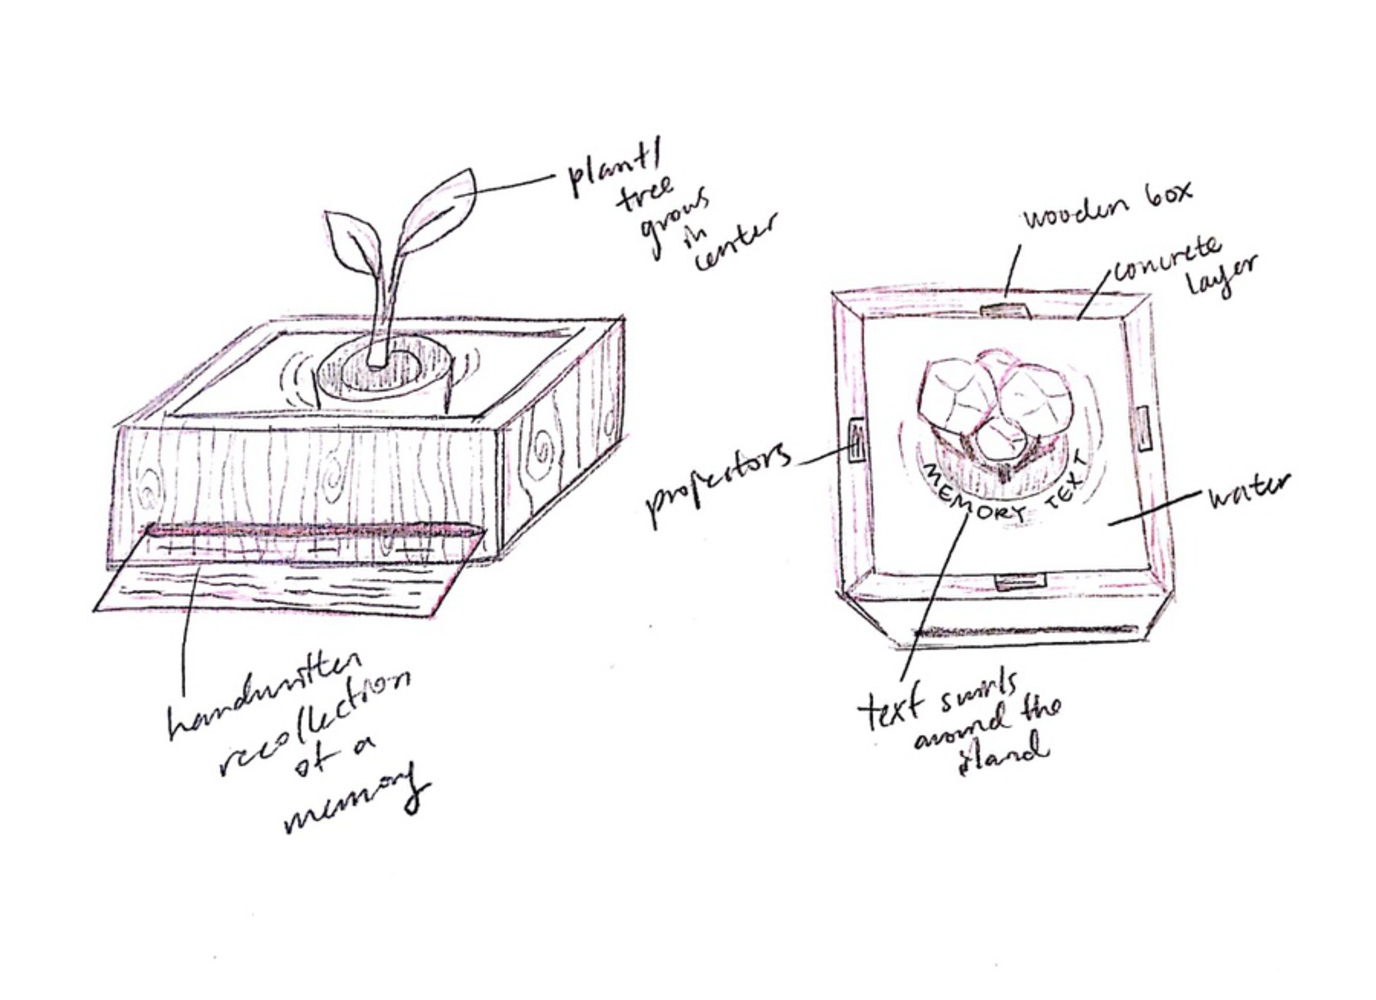 plant/
tree
grows
in
center
handwritten
recollection
of a
memory
wooden box
concrete
layer
projectors
water
MEMORY TEXT
text swirls
around the
island